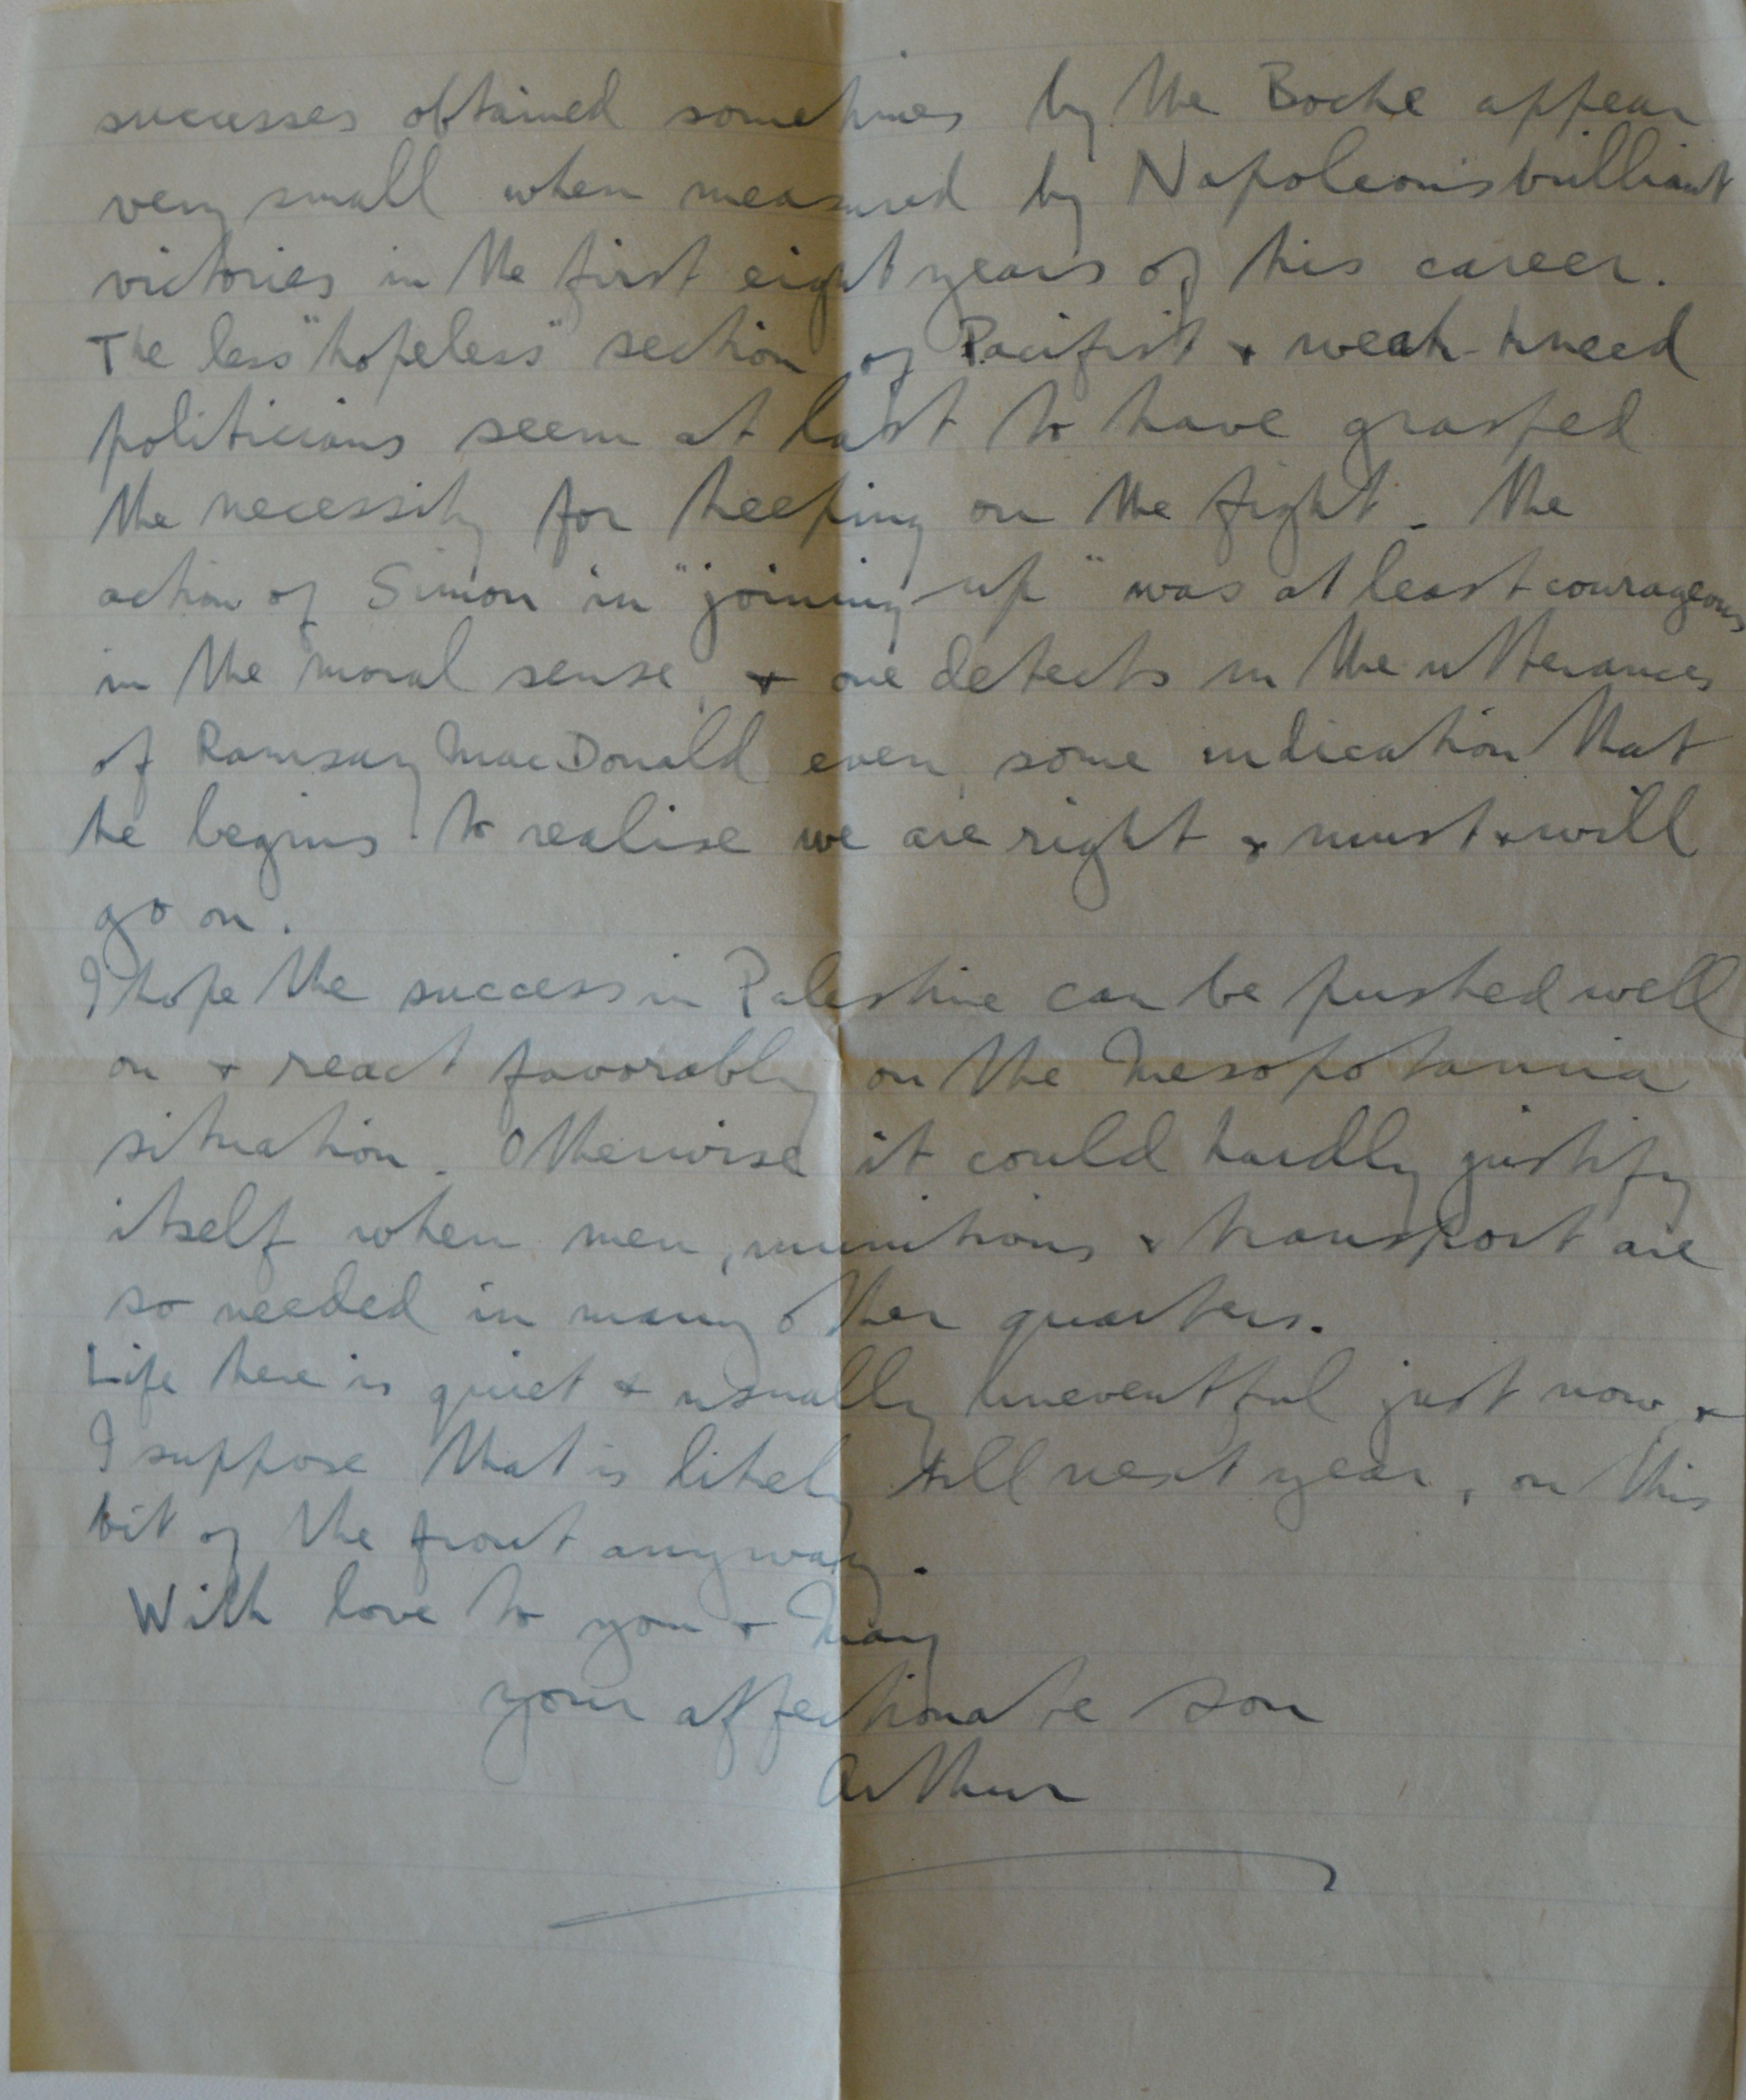 successes obtained sometimes by the Boche appear
very small when measured by Napoleon's brilliant
victories in the first eight years of his career.
The less "hopeless" section of Pacifist & weak-kneed
politicians seem at last to have grasped
the necessity for keeping on the fight. The
action of Simon in "joining-up" was at least courageous
in the moral sense, & one detects in the utterances
of Ramsay MacDonald even, some indication that
he begins to realise we are right & must & will
go on.
I hope the success in Palestine can be pushed well
on & react favorably on the Mesopotamia
situation. Otherwise it could hardly justify
itself when men, munitions & transport are
so needed in many other quarters.
Life here is quiet & usually uneventful just now &
I suppose that is likely till next year, on this
bit of the front anyway.
With love to you & May
your affectionate son
Arthur